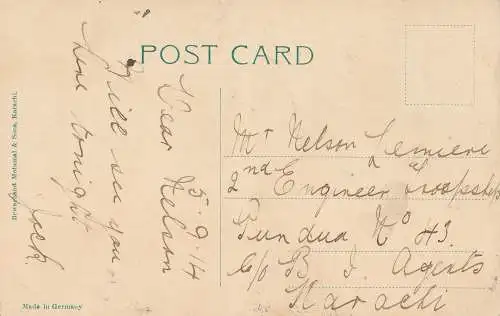 POST CARD
5.9.14
Dear Nelson
Will see you
here tonight
Jack.
Mr Nelson Lemiere
2nd Engineer of Troopship
Pundua No 43.
C/o B I Agents
Karachi
Made in Germany